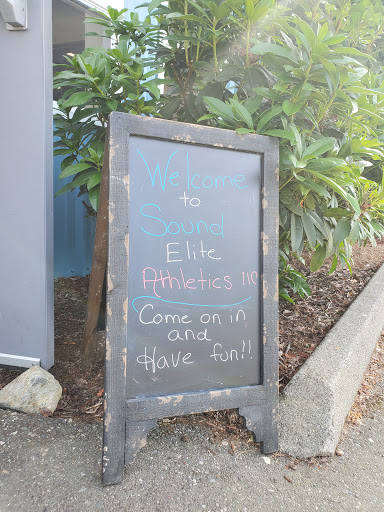 Welcome
to
Sound
Elite
Athletics LLC
Come on in
and
Have fun!!